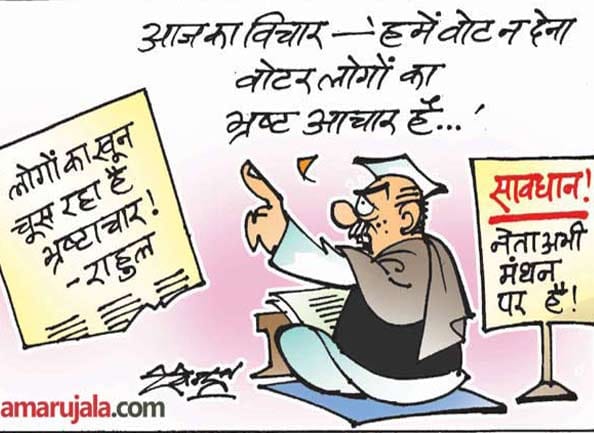 आज का विचार — 'हमें वोट न देना
वोटर लोगों का
भ्रष्ट आचार है...'
लोगों का खून
चूस रहा है
भ्रष्टाचार!
- राहुल
सावधान!
नेता अभी
मंथन
पर है!
amarujala.com